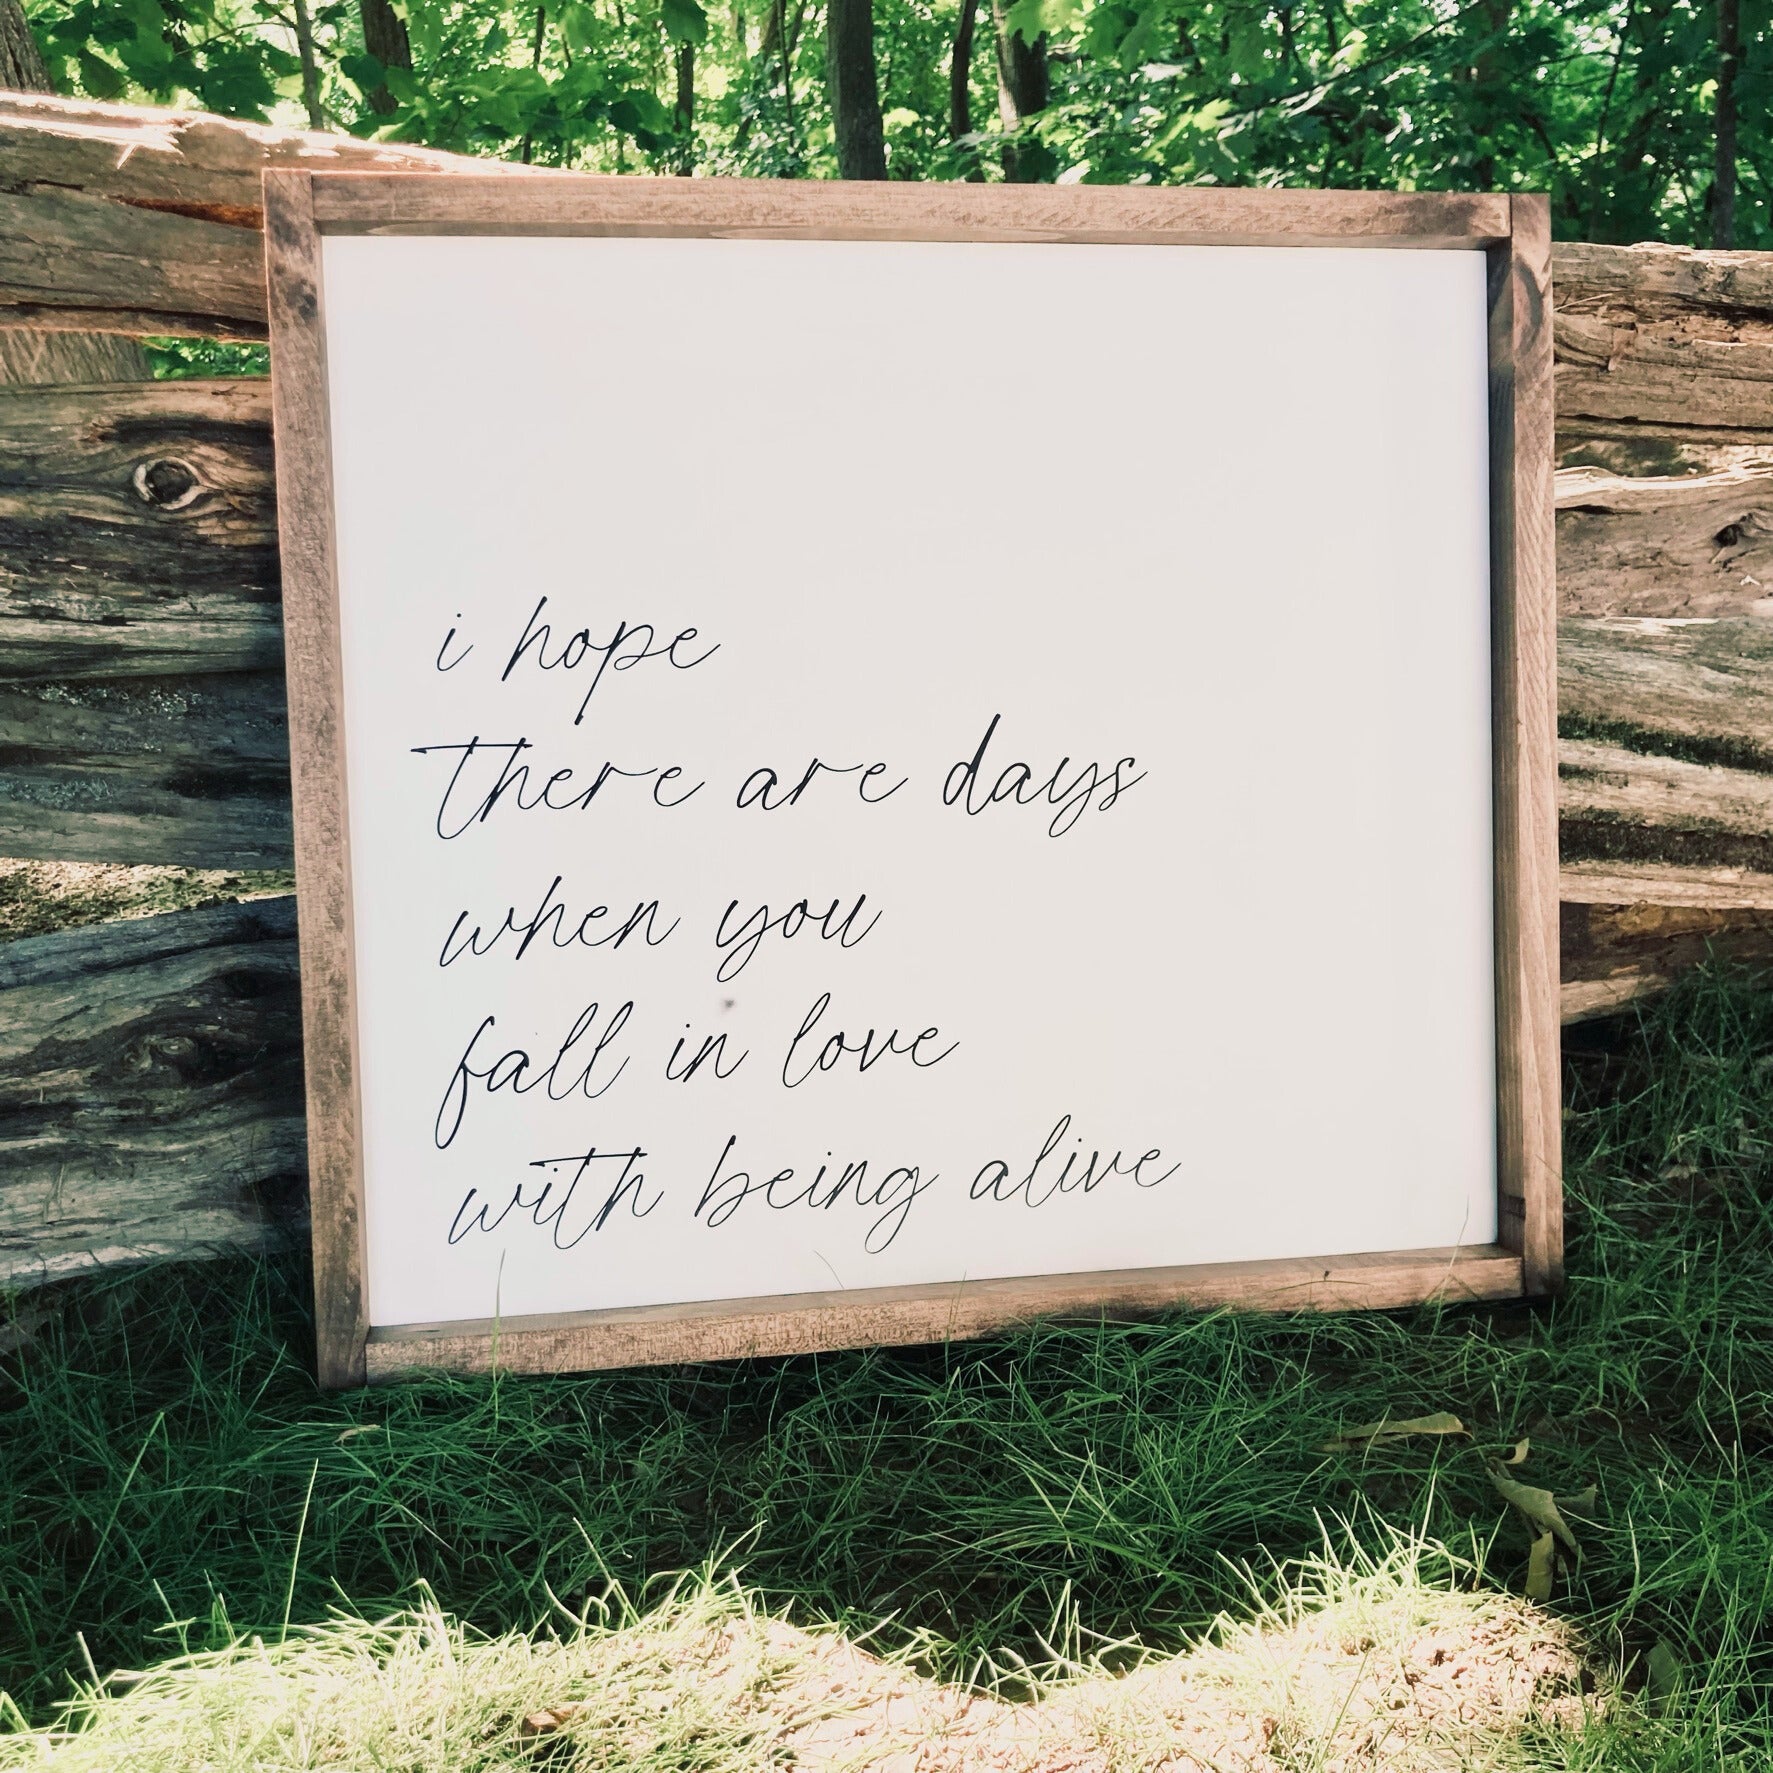 i hope
there are days
when you
fall in love
with being alive